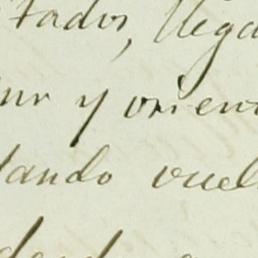 tados, llega
y orien
tando vuel